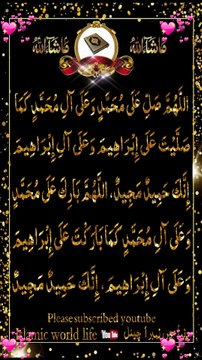 مَاشَاءَاللّٰه مَاشَاءَاللّٰه
اللَّهُمَّ صَلِّ عَلَى مُحَمَّدٍ وَعَلَى آلِ مُحَمَّدٍ كَمَا
صَلَّيْتَ عَلَى إِبْرَاهِيمَ وَعَلَى آلِ إِبْرَاهِيمَ
إِنَّكَ حَمِيدٌ مَجِيدٌ، اللَّهُمَّ بَارِكْ عَلَى مُحَمَّدٍ
وَعَلَى آلِ مُحَمَّدٍ كَمَا بَارَكْتَ عَلَى إِبْرَاهِيمَ
وَعَلَى آلِ إِبْرَاهِيمَ، إِنَّكَ حَمِيدٌ مَجِيدٌ
Please subscribed youtube
islamic world life
میرا چینل